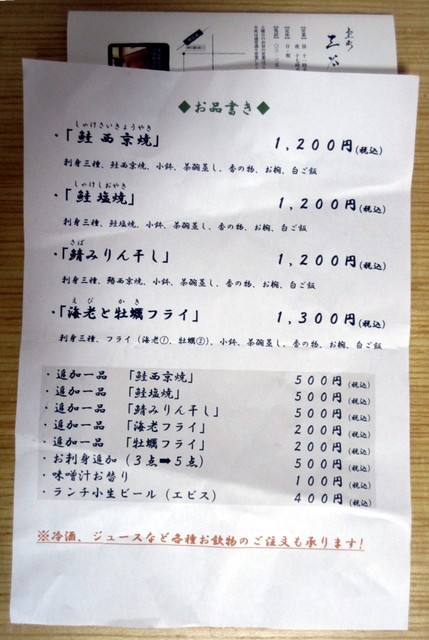 室町 三谷
◆お品書き◆
しゃけさいきょうやき
・「鮭西京焼」 1,200円(税込)
刺身三種、鮭西京焼、小鉢、茶碗蒸し、香の物、お椀、白ご飯
しゃけしおやき
・「鮭塩焼」 1,200円(税込)
刺身三種、鮭塩焼、小鉢、茶碗蒸し、香の物、お椀、白ご飯
さば
・「鯖みりん干し」 1,200円(税込)
刺身三種、鮭西京焼、小鉢、茶碗蒸し、香の物、お椀、白ご飯
えび かき
・「海老と牡蠣フライ」 1,300円(税込)
刺身三種、フライ（海老①、牡蠣②）、小鉢、茶碗蒸し、香の物、お椀、白ご飯
・追加一品 「鮭西京焼」 500円(税込)
・追加一品 「鮭塩焼」 500円(税込)
・追加一品 「鯖みりん干し」 500円(税込)
・追加一品 「海老フライ」 200円(税込)
・追加一品 「牡蠣フライ」 200円(税込)
・お刺身追加（3点➡5点） 500円(税込)
・味噌汁お替り 100円(税込)
・ランチ小生ビール（エビス） 400円(税込)
※冷酒、ジュースなど各種お飲物のご注文も承ります!